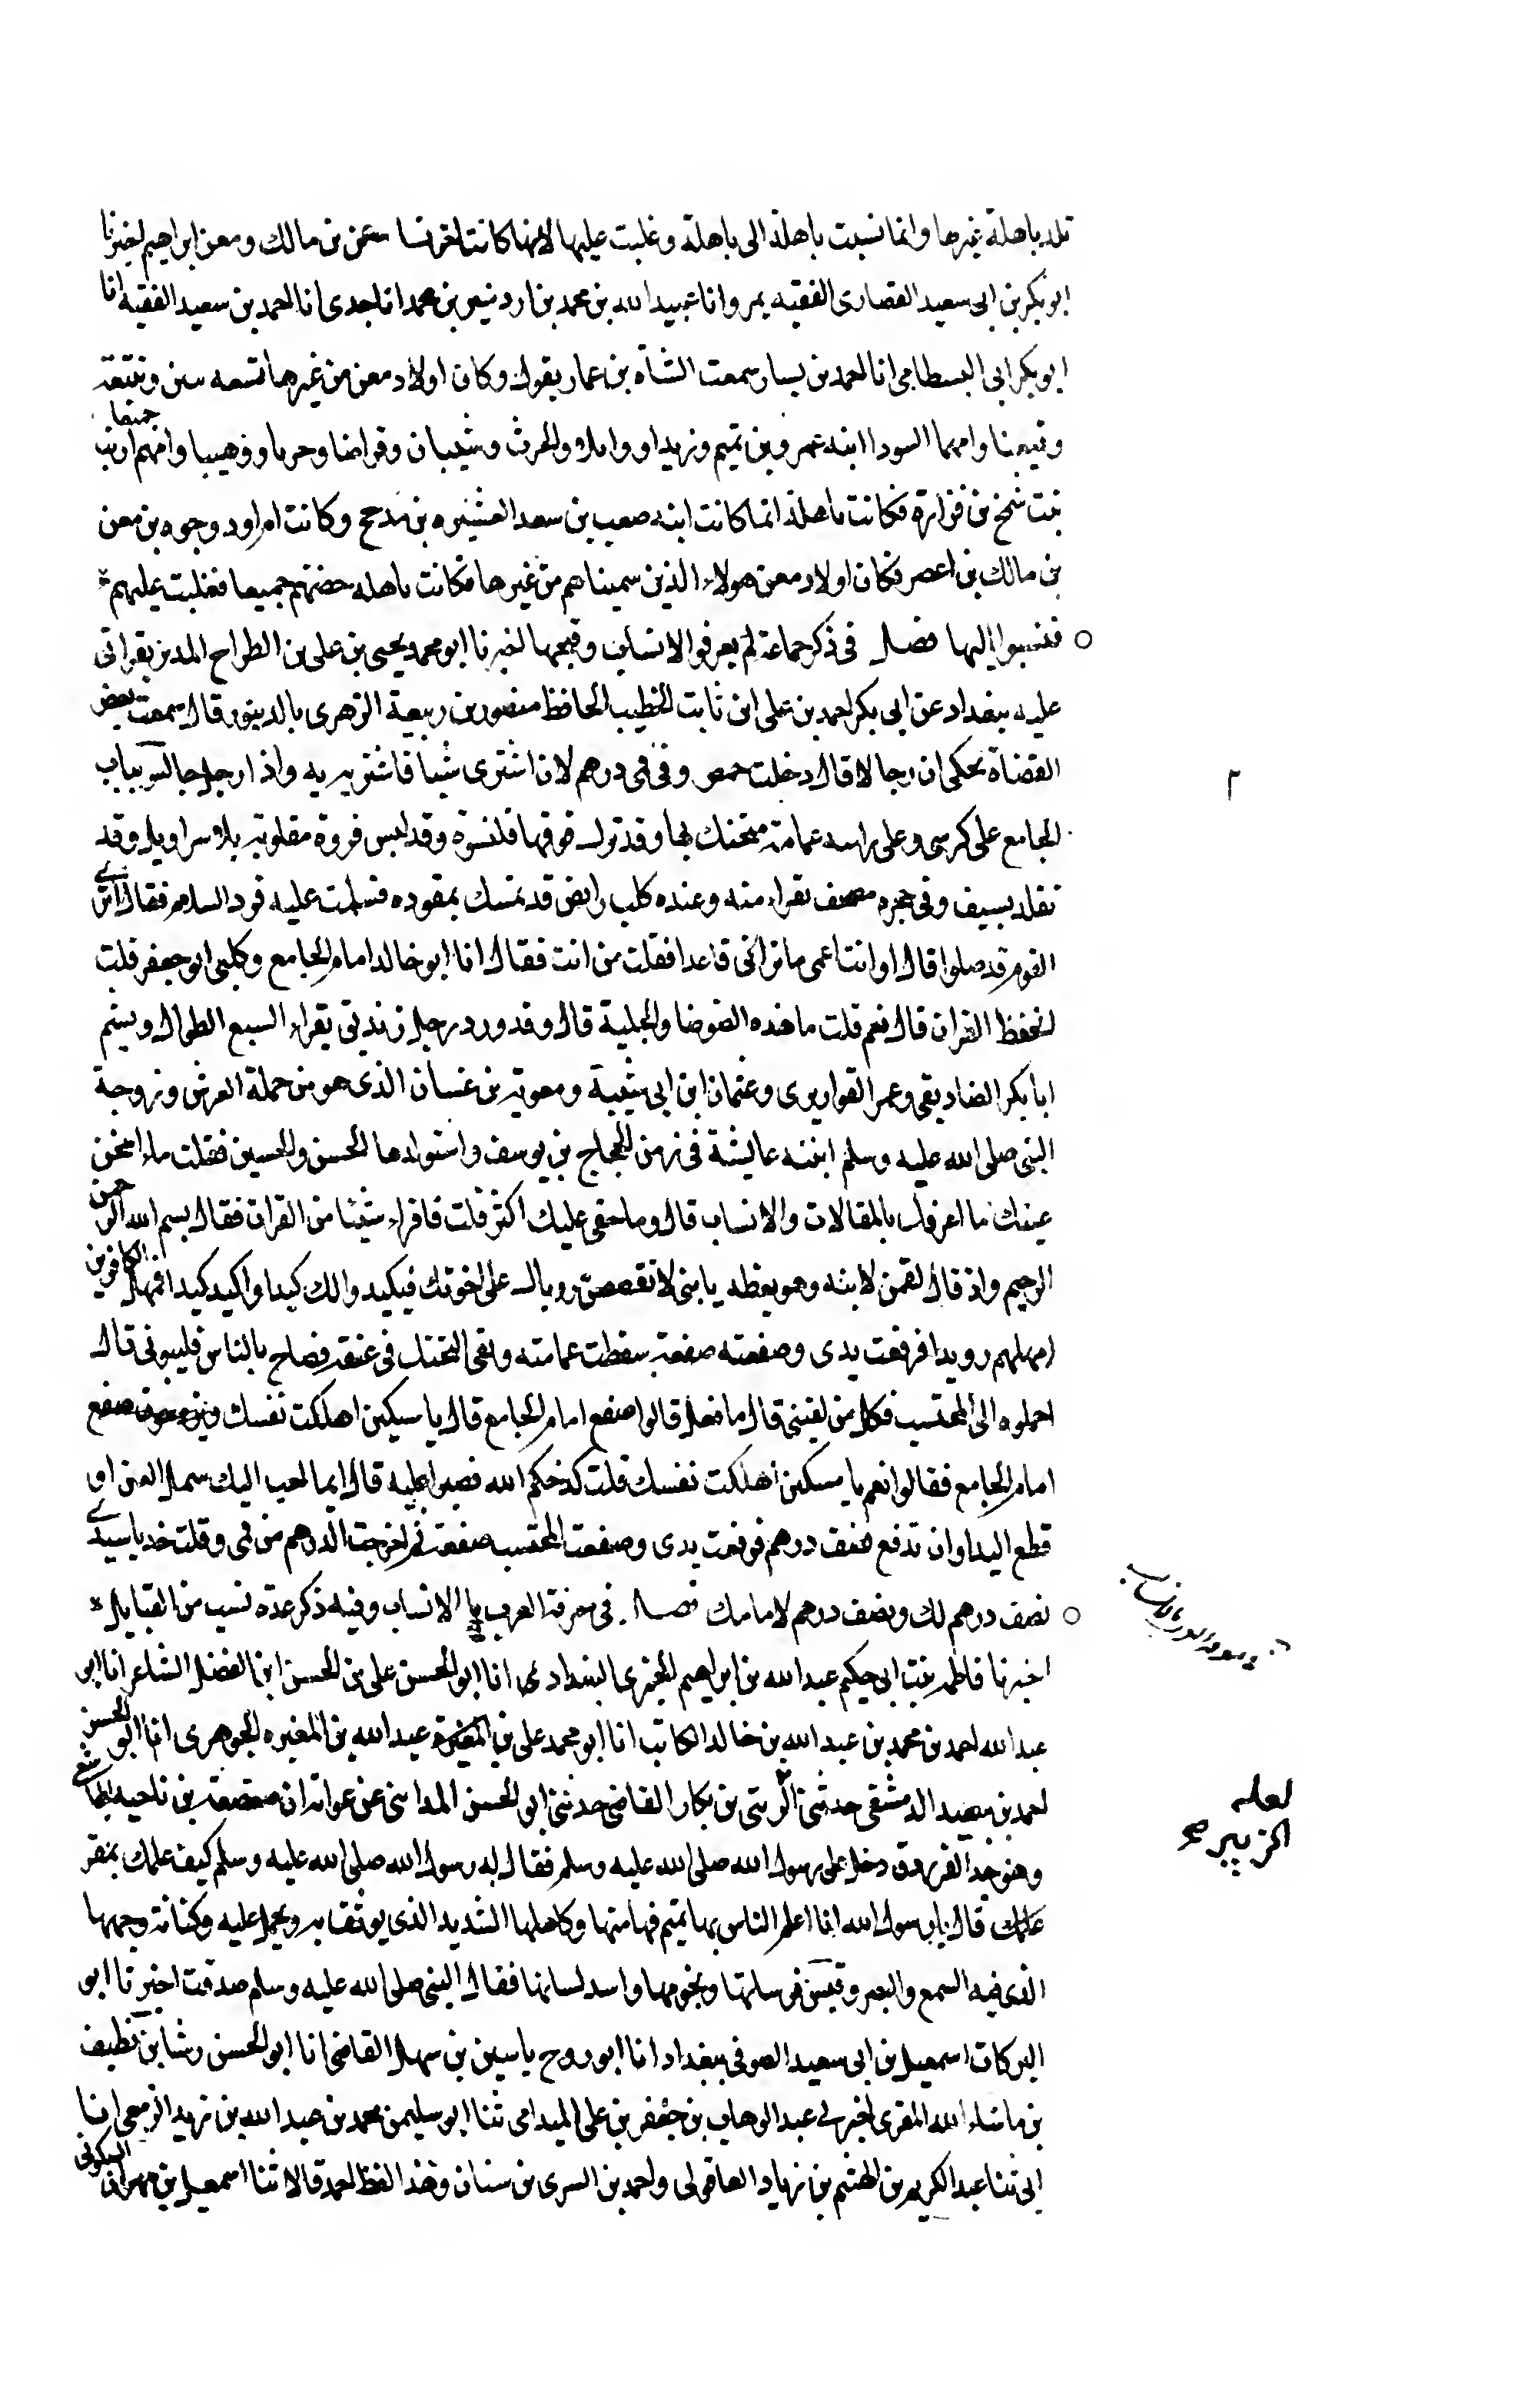 تلد باهلة غيرها وانما نسبت باهلة الى باهلة وغلبت عليها لانها كانت معن بن مالك ومعن ابراهيم اخبرنا
ابو بكر بن ابى سعيد الفقيه بمرو انا عبيد الله بن محمد بن اردشير بن محمد انا جدى انا احمد بن سعيد الفقيه انا
ابو بكر البسطامى انا احمد بن يسار سمعت الشاه بن عمار يقول وكان اولاد معن من غيرها تسعه
وامهما السودا ابنه عمرو بن تميم وزيدا ووايلا والحرث وشيبان وقراصا وحربا ووهيبا وامهم ارنب
بنت شمخ بن فزارة فكانت باهلة انما كانت ابنه صعب بن سعد العشيره بن مذحج وكانت ام اود وجوه بن معن
بن مالك بن اعصر فكان اولاد معن هولاء الذين سميناهم من غيرها فكانت باهله حضنتهم جميعا فغلبت عليهم
فنسبوا اليها فصل فى ذكر جماعة لم يعرفوا الانساب اخبرنا ابو محمد يحيى بن على بن الطراح المدير بقراتى
عليه ببغداد عن ابى بكر احمد بن على ابن ثابت الخطيب الحافظ منصور بن ربيعة الزهرى بالدينور قال سمعت بعض
القضاة يحكى ان رجالا قال دخلت حمص وفى فمى درهم لان اشترى شيا فاشتريه به واذا رجل جالس بباب
الجامع على كرسى وعلى راسه عمامة متحنك بها وقد ترك فوقها قلنسوة وقد لبس فروة مقلوبة بلا سراويل وقد
تقلد بسيف وفى حجره مصحف يقراء منه وعنده كلب رابض قد تمسك بمقوده فسلمت عليه فرد السلام فقال
القوم قد صلوا قال او انت اعمى ما ترانى قاعدا فقلت من انت فقال انا ابو خالد امام الجامع وكلبى ابو جعفر قلت
اتحفظ القران قال نعم قلت ما هذه الضوضا والجلبة قال وقد ورد رجل زنديق يقراء السبع الطوال ويشتم
ابا بكر الصاديقى وعمر القواريرى وعثمان ابن ابى شيبة ومعوية بن غسان الذى هو من حملة العرش وزوجة
النبى صلى الله عليه وسلم ابنته عايشة فى زمن الحجاج بن يوسف واستولدها الحسن والحسين فقلت
عينك ما اعرفك بالمقالات والانساب قال وما خفى عليك اكثر قلت فاقراء شيئا من القران فقال بسم الله الرحمن
الرحيم واذ قال لقمن لابنه وهو يعظه يا بنى لا تقصص روياك على اخوتك فيكيدوا لك كيدا واكيد كيدا فمهل الكافرين
امهلهم رويدا فرفعت يدى وصفعته صفعة سقطت عمامته وبقى التحنك فى عنقه فصاح بالناس فلببونى قال
احملوه الى المحتسب فكل من لقينى قال ما فعل قالوا صفع امام الجامع قال يا مسكين اهلكت نفسك صفع
امام الجامع فقالوا نعم يا مسكين اهلكت نفسك قلت كذ حكم الله فصبرا عليه قال ايما احب اليك سمل العين او
قطع اليد او ان تدفع نصف درهم فرفعت يدى وصفعت المحتسب صفعة ثم اخرجت الدرهم من فمى وقلت خذ يا سيدى
نصف درهم لك ونصف درهم لامامك فصل فى معرفة العرب بالانساب وفيه ذكر عدة نسب من القبايل
اخبرنا فاطمه بنت ابى حكيم عبد الله بن ابراهيم الخبرى البغدادى انا ابو الحسن على بن الحسن ابن الفضل الشاعر انا ابو
عبد الله احمد بن محمد بن عبد الله بن خالد الكاتب انا ابو محمد على بن المغيرة عبد الله بن المغيره الجوهرى انا ابو الحسن
احمد بن سعيد الدمشقى حدثنى الزبير بن بكار القاضى حدثنى ابو الحسن المداينى عن عوانه ان صعصعة بن ناجيه المجاشعى
وهو جد الفرزدق دخل على رسول الله صلى الله عليه وسلم فقال له رسول الله صلى الله عليه وسلم كيف علمك بمضر
علمك قال يا رسول الله انا اعلم الناس بها تميم هامتها وكاهلها الشديد الذى يوثق به ويحمل عليه وكنانة وجهها
الذى فيه السمع والبصر وقيس فرسانها ونجومها واسد لسانها فقال النبى صلى الله عليه وسلم صدقت اخبرنا ابو
البركات اسمعيل بن ابى سعيد الصوفى ببغداد انا ابو روح ياسين بن سهل القاضى انا ابو الحسن رشا بن نظيف
بن ما شاء الله المقرى اخبرنى عبد الوهاب بن جعفر بن على الميدامى ثنا ابو سليمن محمد بن عبد الله بن زيد الربعى انبا
ابى ثنا عبد الكريم بن الهيثم بن زياد العاقولى واحمد بن السرى بن سنان وهذا لفظ احمد قالا ثنا اسمعيل بن مهران السكونى
لعله
الزبير صح